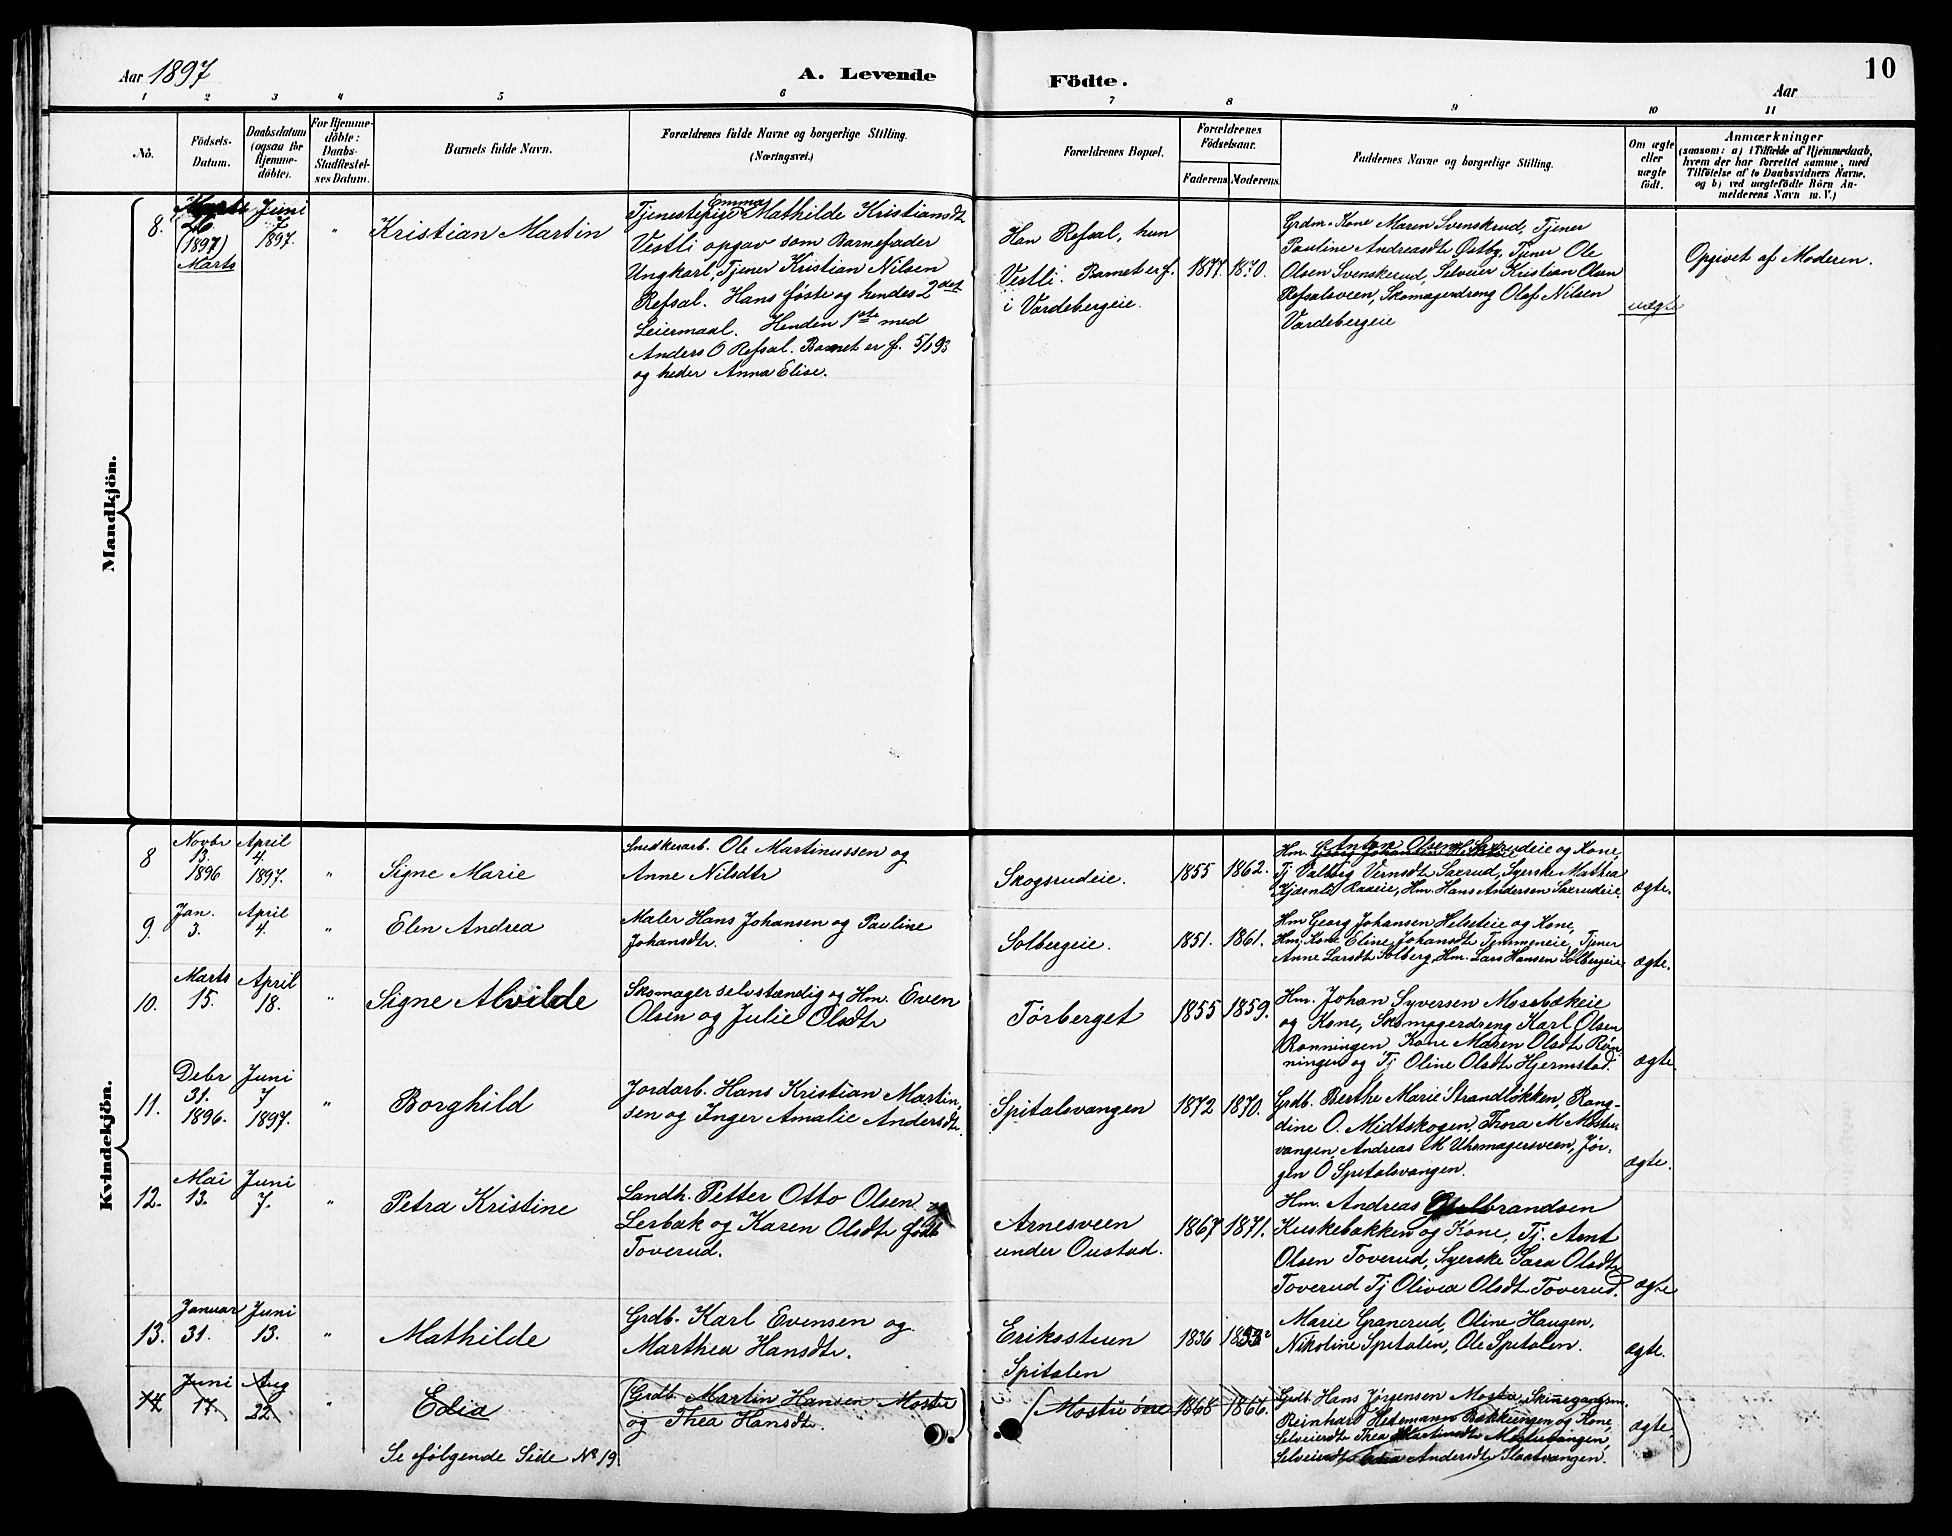 Aar 1897
A. Levende
Födte.
Aar
10
1 2 3 4 5 6 7 8 9 10 11
No.
Födsels-
Datum.
Daabsdatum
(ogsaa for
Hjemme-
döbte).
For Hjemme-
döbte:
Daabs-
Stadfæstel-
ses Datum.
Barnets fulde Navn.
Forældrenes fulde Navne og borgerlige Stilling.
(Næringsvei.)
Forældrenes Bopæl.
Forældrenes
Födselsaar.
Faderens Moderens
Faddernes Navne og borgerlige Stilling.
Om ægte
eller
uægte
födt.
Anmærkninger
(saasom: a) i Tilfælde af Hjemmedaab,
hvem der har forrettet samme, med
Tilföielse af to Daabsvidners Navne,
og b) ved uægtefödte Börn An-
melderens Navn m. V.)
Mandkjön.
8.
26
(1897)
Marts
Juni
7
1897.
"
Kristian Martin
Tjenestepige Emma Mathilde Kristiansdt
Vestli opgav som Barnefader
Ungkarl, Tjener Kristian Nilsen
Refsal. Hans første og hendes 2det
Leiermaal. Henden 1ste med
Anders O Refsal. Barnet er f. 5/1 93
og heder Anna Elise.
Han Refsal, hun
Vestli. Barnet er f.
i Vardebergeie.
1877. 1870.
Grdm. Kone Maren Svenskrud, Tjener
Pauline Andreasdt Østby, Tjener Ole
Olsen Svenskerud, Selveier Kristian Olsen
Refsalsveen, Skomagerdreng Olaf Nilsen
Vardebergeie
uægte
Opgivet af Moderen.
Kvindekjön.
8
Novbr
13.
1896
April
4.
1897.
"
Signe Marie
Snedkerarb. Ole Martinussen og
Anne Nilsdtr
Skogsrudeie.
1855 1862.
Hm. Anton Olsen Saxrudeie og Kone,
Tj Valborg Vernsdt Saxrud, Syerske Mathea
Raaeie, Hm. Hans Andersen Saxrudeie.
ægte.
9.
Jan.
3.
April
4.
"
Elen Andrea
Maler Hans Johansen og Pauline
Johansdtr.
Solbergeie.
1851. 1861.
Hm Georg Johansen Helsteie og Kone,
Hm. Kone Eline Johansdtr Temmeneie, Tjener
Anne Larsdt Solberg, Hm. Lars Hansen Solbergeie
ægte.
10.
Marts
15.
April
18.
"
Signe Alvilde
Skomager selvstændig og Hm. Even
Olsen og Julie Olsdtr
Torberget
1855 1859.
Hm. Johan Syversen Mosebækeie
og Kone, Skomagerdreng Karl Olsen
Rønningen, Kone Maren Olsdtr Røn-
ningen og Tj Oline Olsdtr Hjermstad.
ægte.
11.
Debr
31.
1896.
Juni
7
1897.
"
Borghild
Jordarb. Hans Kristian Martin-
sen og Inger Amalie Andersdtr.
Spitalsvangen
1872 1870.
Grdb. Berthe Marie Strandløkken, Rang-
dine O. Midtskogen, Thora M Mostu-
vangen, Andreas M Uhrmagersveen, Jør-
gen O Spitalsvangen.
ægte.
12.
Mai
13.
Juni
7.
"
Petra Kristine
Landh. Petter Otto Olsen
Lerbak og Karen Olsdtr født
Toverud.
Arnesveen
under Oustad.
1867 1871.
Hm. Andreas Gulbrandsen
Kuskebakken og Kone, Tj. Arnt
Olsen Toverud, Syerske Sara Olsdtr
Toverud Tj Olivia Olsdt Toverud.
ægte
13.
Januar
31.
Juni
13.
"
Mathilde
Grdb. Karl Evensen og
Marthea Hansdtr.
Eriksstuen
Spitalen
1836
Marie Granerud, Oline Haugen,
Nikoline Spitalen, Ole Spitalen.
ægte.
14
Juni
17.
Aug
22.
"
Edia
(Grdb. Martin Hansen Mostu
og Thea Hansdtr.
Mostu
1868 1866.
Grdb. Hans Jørgensen Mostu,
Reinhart Bakkeengen og Kone,
Selveierdt Thea Martinsdt Mostuvangen,
Selveierdt Edia Andersdt Slaatvangen.
ægte.
Se følgende Side No 19